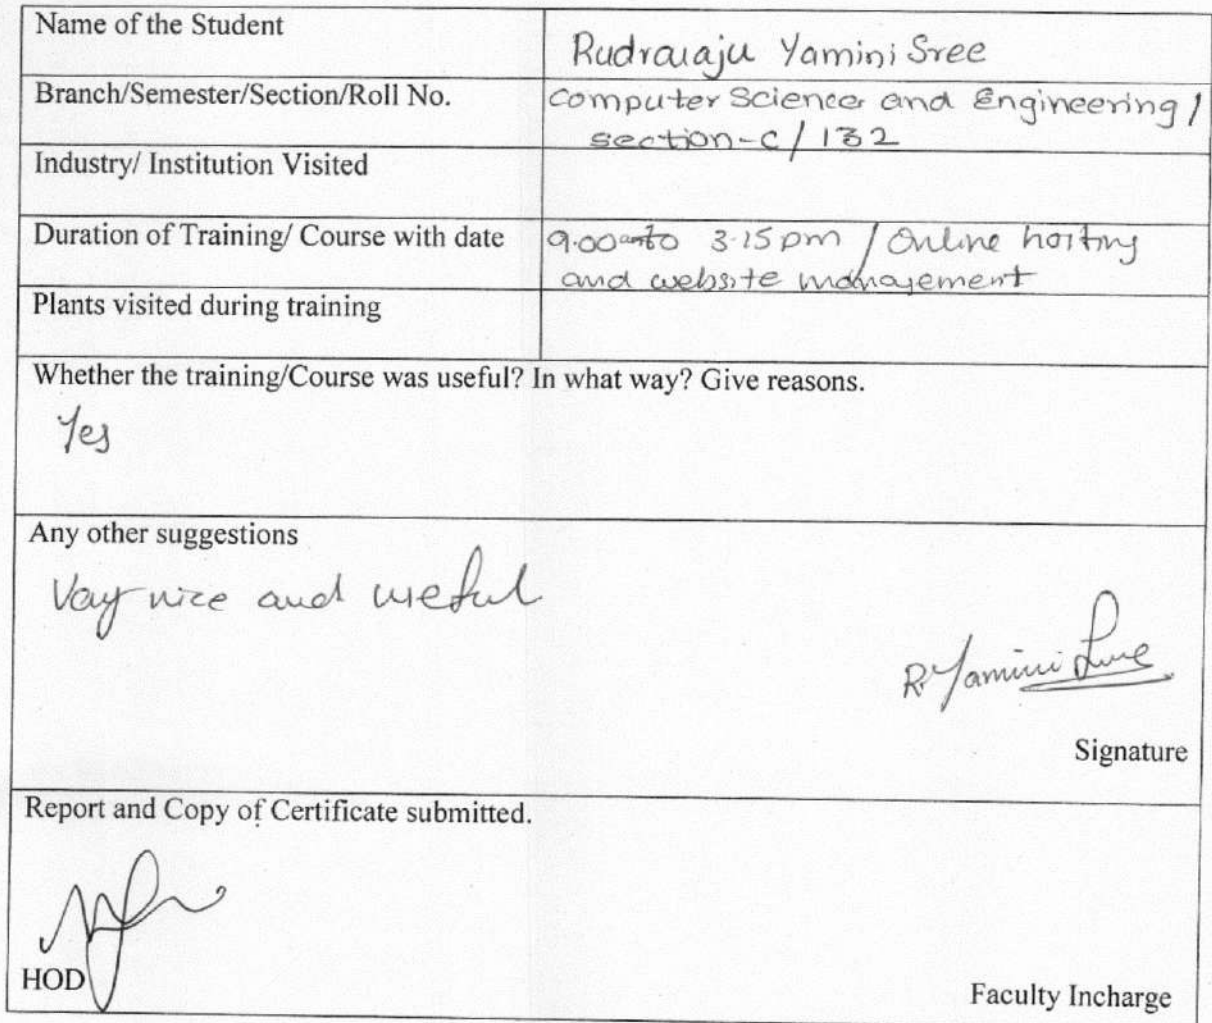 Name of the Student
Rudraraju Yamini Sree
Branch/Semester/Section/Roll No.
Computer Science and Engineering /
section-c / 132
Industry/ Institution Visited
Duration of Training/ Course with date
9.00am to 3.15pm / Online hosting
and website management
Plants visited during training
Whether the training/Course was useful? In what way? Give reasons.
Yes
Any other suggestions
Very nice and useful
R. Yamini Sree
Signature
Report and Copy of Certificate submitted.
HOD
Faculty Incharge